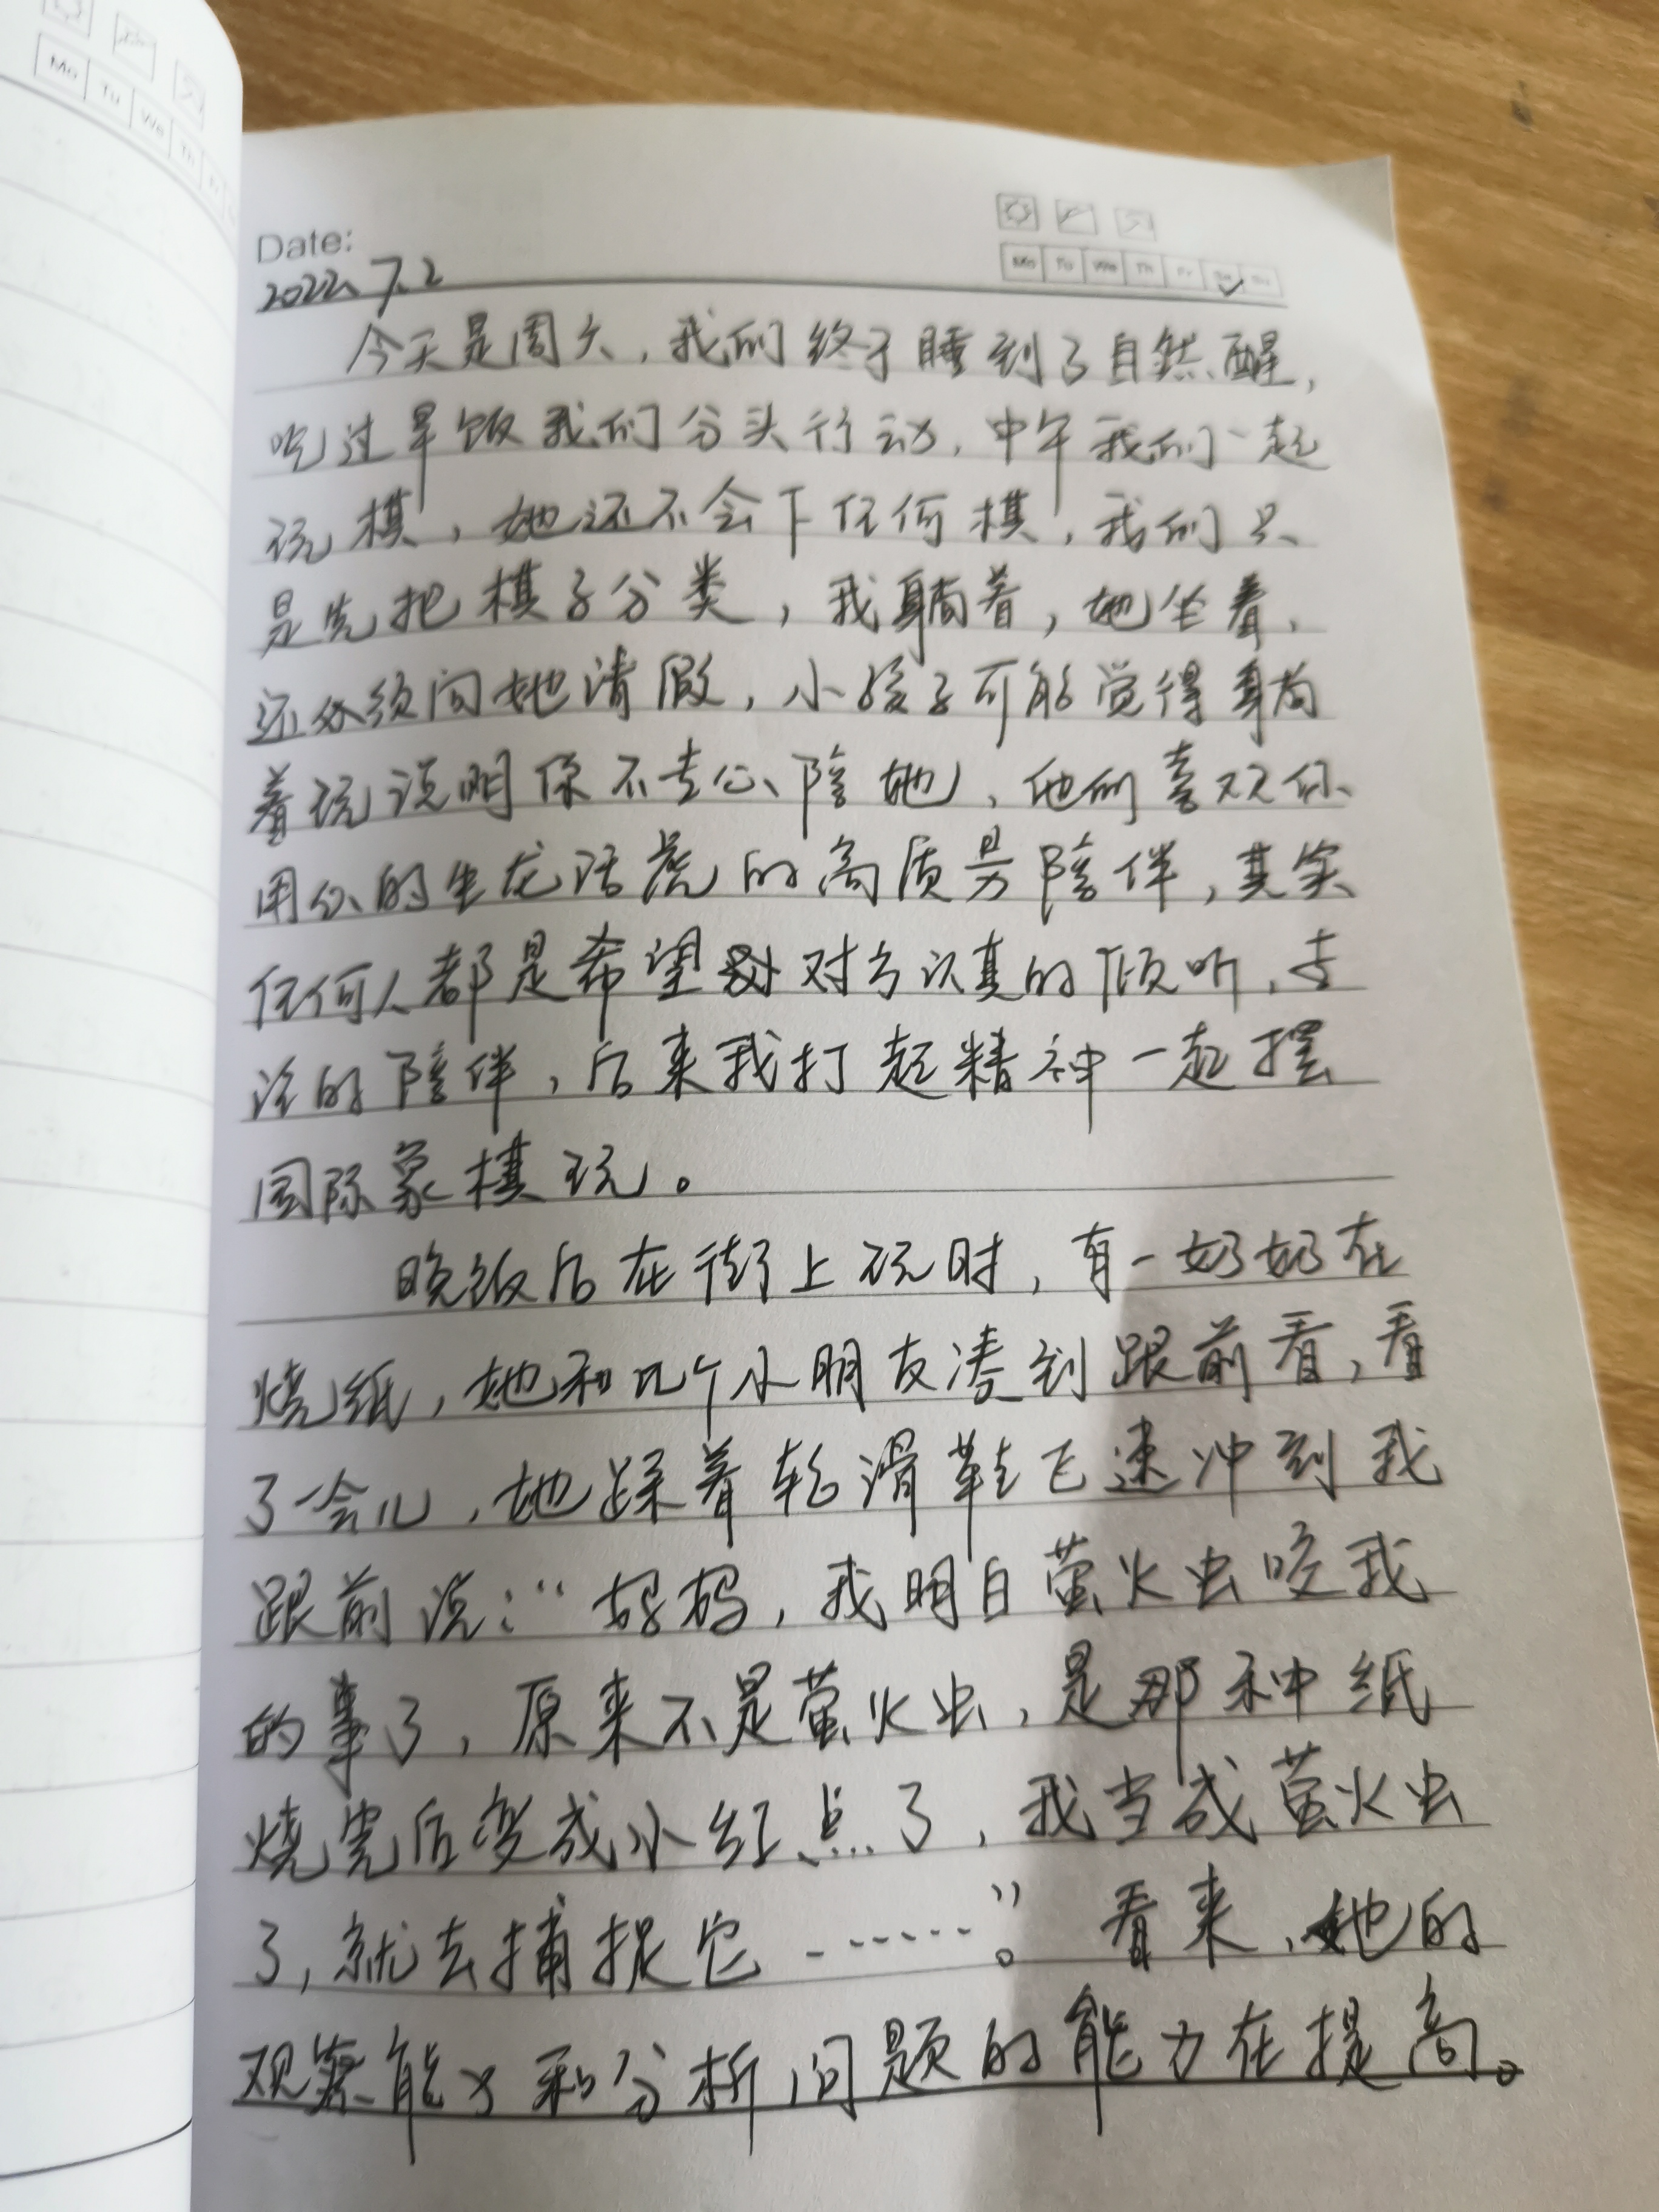 Mo Tu We Th Fr
Date:
Mo Tu We Th Fr Sa Su
2022.7.2
今天是周六，我们终于睡到了自然醒，
吃过早饭我们分头行动，中午我们一起
玩棋，她还不会下任何棋，我们只
是先把棋子分类，我躺着，她坐着，
还必须向她请假，小孩子可能觉得躺
着玩说明你不专心陪她，他们喜欢你
用你的生龙活虎的高质量陪伴，其实
任何人都是希望对方认真的倾听，专
注的陪伴，后来我打起精神一起摆
国际象棋玩。
晚饭后在街上玩时，有一奶奶在
烧纸，她和几个小朋友凑到跟前看，看
了一会儿，她踩着轮滑鞋飞速冲到我
跟前说：“妈妈，我明白萤火虫咬我
的事了，原来不是萤火虫，是那种纸
烧完后变成小红点了，我当成萤火虫
了，就去捕捉它……”。看来，她的
观察能力和分析问题的能力在提高。